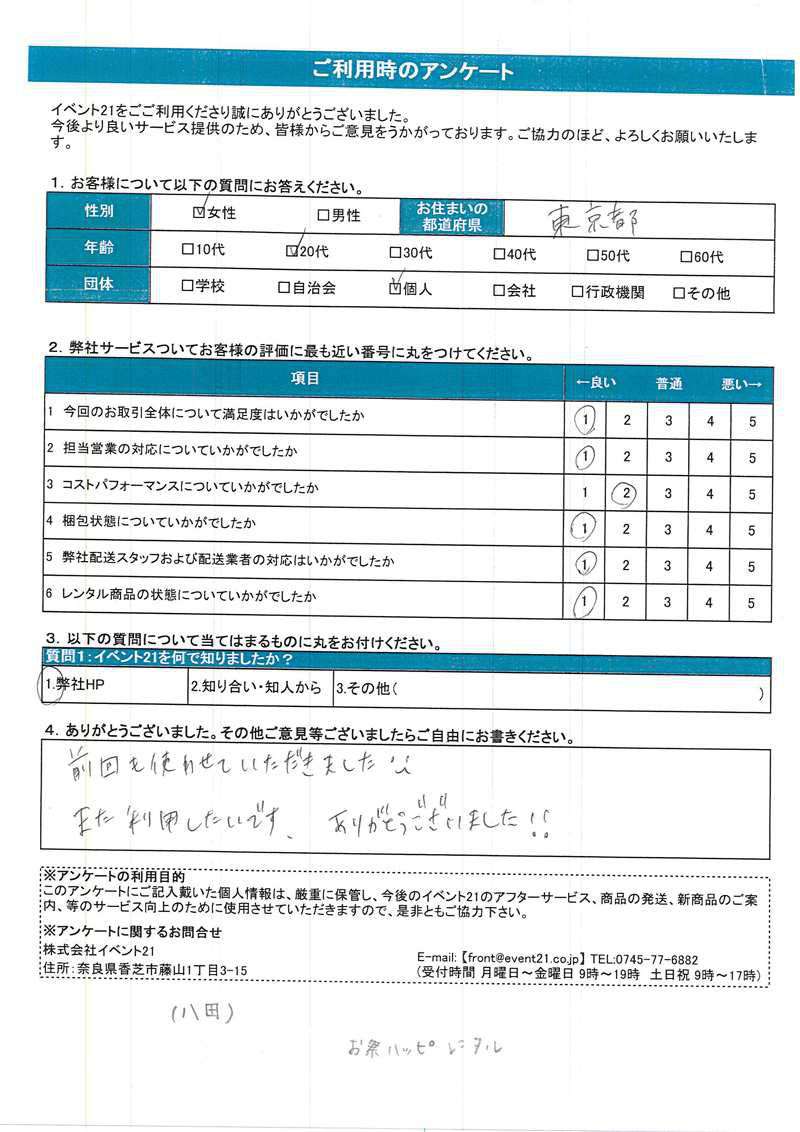 ご利用時のアンケート
イベント21をごご利用くださり誠にありがとうございました。
今後より良いサービス提供のため、皆様からご意見をうかがっております。ご協力のほど、よろしくお願いいたしま
す。
1. お客様について以下の質問にお答えください。
性別 ☑女性 □男性 お住まいの都道府県 東京都
年齢 □10代 ☑20代 □30代 □40代 □50代 □60代
団体 □学校 □自治会 ☑個人 □会社 □行政機関 □その他
2. 弊社サービスついてお客様の評価に最も近い番号に丸をつけてください。
項目 ←良い 普通 悪い→
1 今回のお取引全体について満足度はいかがでしたか 1 2 3 4 5
2 担当営業の対応についていかがでしたか 1 2 3 4 5
3 コストパフォーマンスについていかがでしたか 1 2 3 4 5
4 梱包状態についていかがでしたか 1 2 3 4 5
5 弊社配送スタッフおよび配送業者の対応はいかがでしたか 1 2 3 4 5
6 レンタル商品の状態についていかがでしたか 1 2 3 4 5
3. 以下の質問について当てはまるものに丸をお付けください。
質問1:イベント21を何で知りましたか?
1.弊社HP 2.知り合い・知人から 3.その他( )
4. ありがとうございました。その他ご意見等ございましたらご自由にお書きください。
前回も使わせていただきました
また利用したいです、ありがとうございました!!
※アンケートの利用目的
このアンケートにご記入戴いた個人情報は、厳重に保管し、今後のイベント21のアフターサービス、商品の発送、新商品のご案
内、等のサービス向上のために使用させていただきますので、是非ともご協力下さい。
※アンケートに関するお問合せ
株式会社イベント21
住所:奈良県香芝市藤山1丁目3-15
E-mail:【front@event21.co.jp】 TEL:0745-77-6882
(受付時間 月曜日~金曜日 9時~19時 土日祝 9時~17時)
(八田)
お祭ハッピレンタル